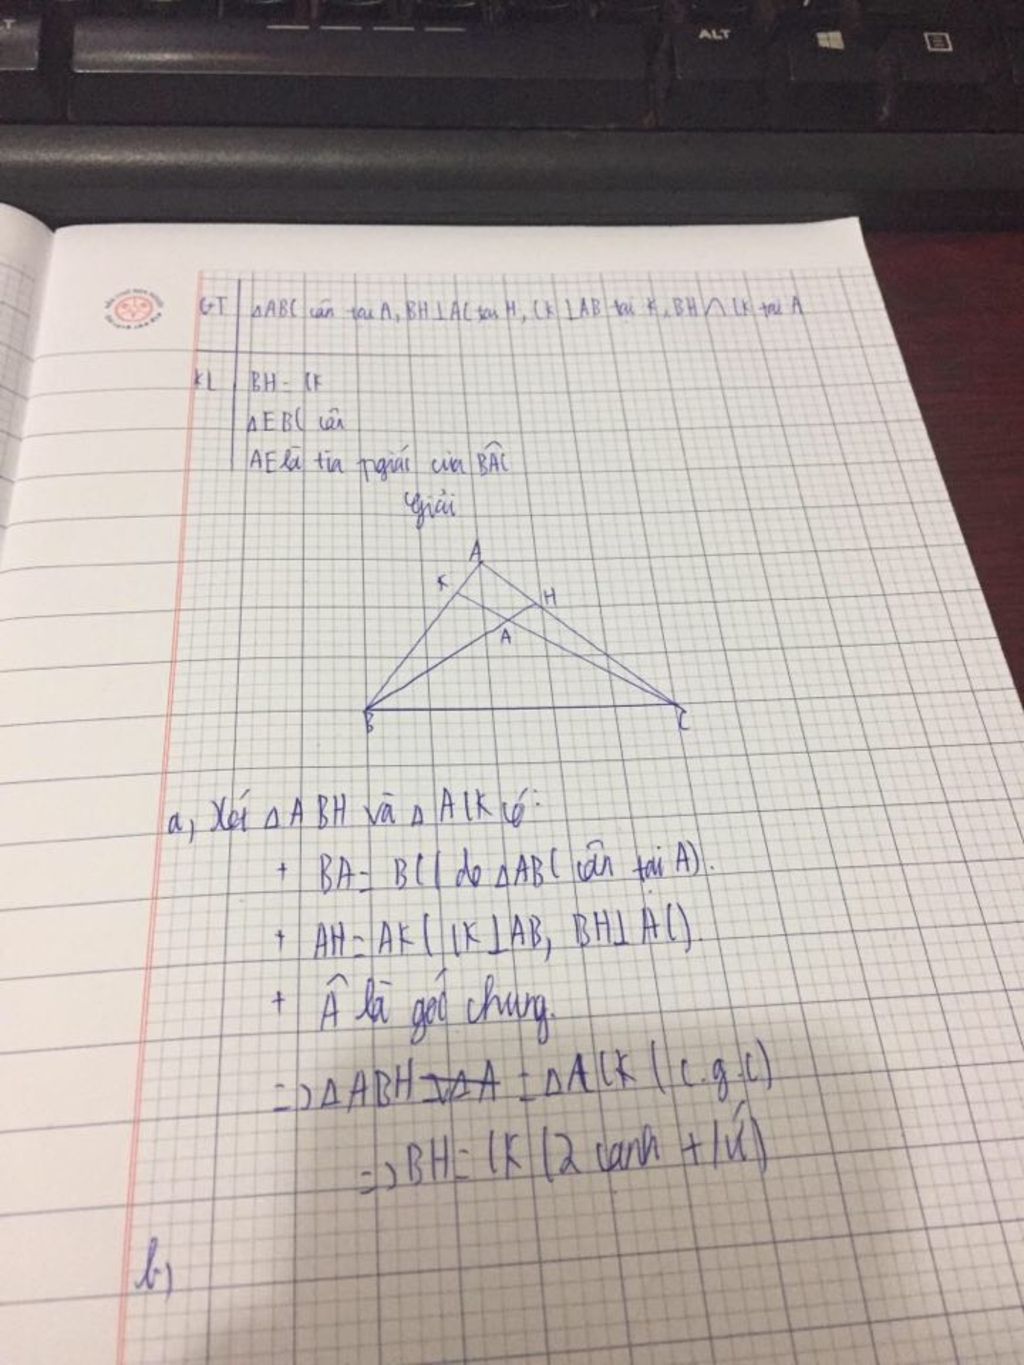 ALT
GT ΔABC cân tại A, BH⊥AC tại H, CK⊥AB tại K, BH∩CK tại A
KL BH = CK
ΔEBC cân
AE là tia pgiác của BÂC
Giải
A
K
H
A
B
C
a, Xét ΔABH và ΔACK có:
+ BA = BC (do ΔABC cân tại A).
+ AH = AK (CK⊥AB, BH⊥AC).
+ Â là góc chung.
=> ΔABH = ΔA = ΔACK (c.g.c)
=> BH = CK (2 cạnh t/ứ)
b,